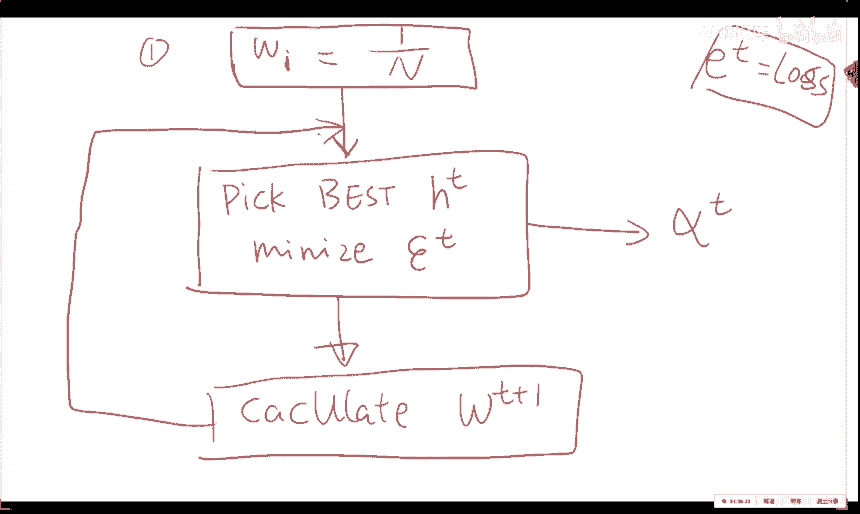 ① wᵢ = 1/N
eᵗ = Loss
Pick BEST hᵗ
minize εᵗ
αᵗ
cacUlate wᵗ⁺¹